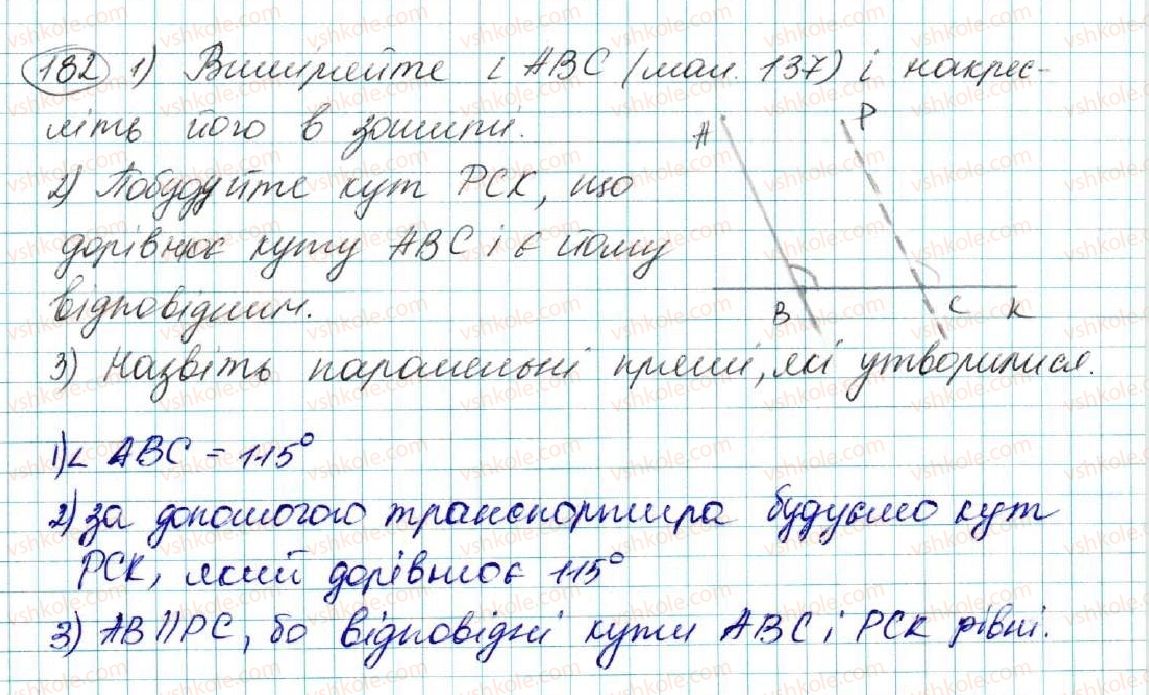 182 1) Виміряйте ∠ ABC (мал. 137) і накрес-
літь його в зошиті.
2) Побудуйте кут PCK, що
дорівнює куту ABC і є йому
відповідним.
3) Назвіть паралельні прямі, які утворилися.
A P
B C K
1) ∠ ABC = 115°
2) за допомогою транспортира будуємо кут
PCK, який дорівнює 115°
3) AB || PC, бо відповідні кути ABC і PCK рівні.
vshkole.com